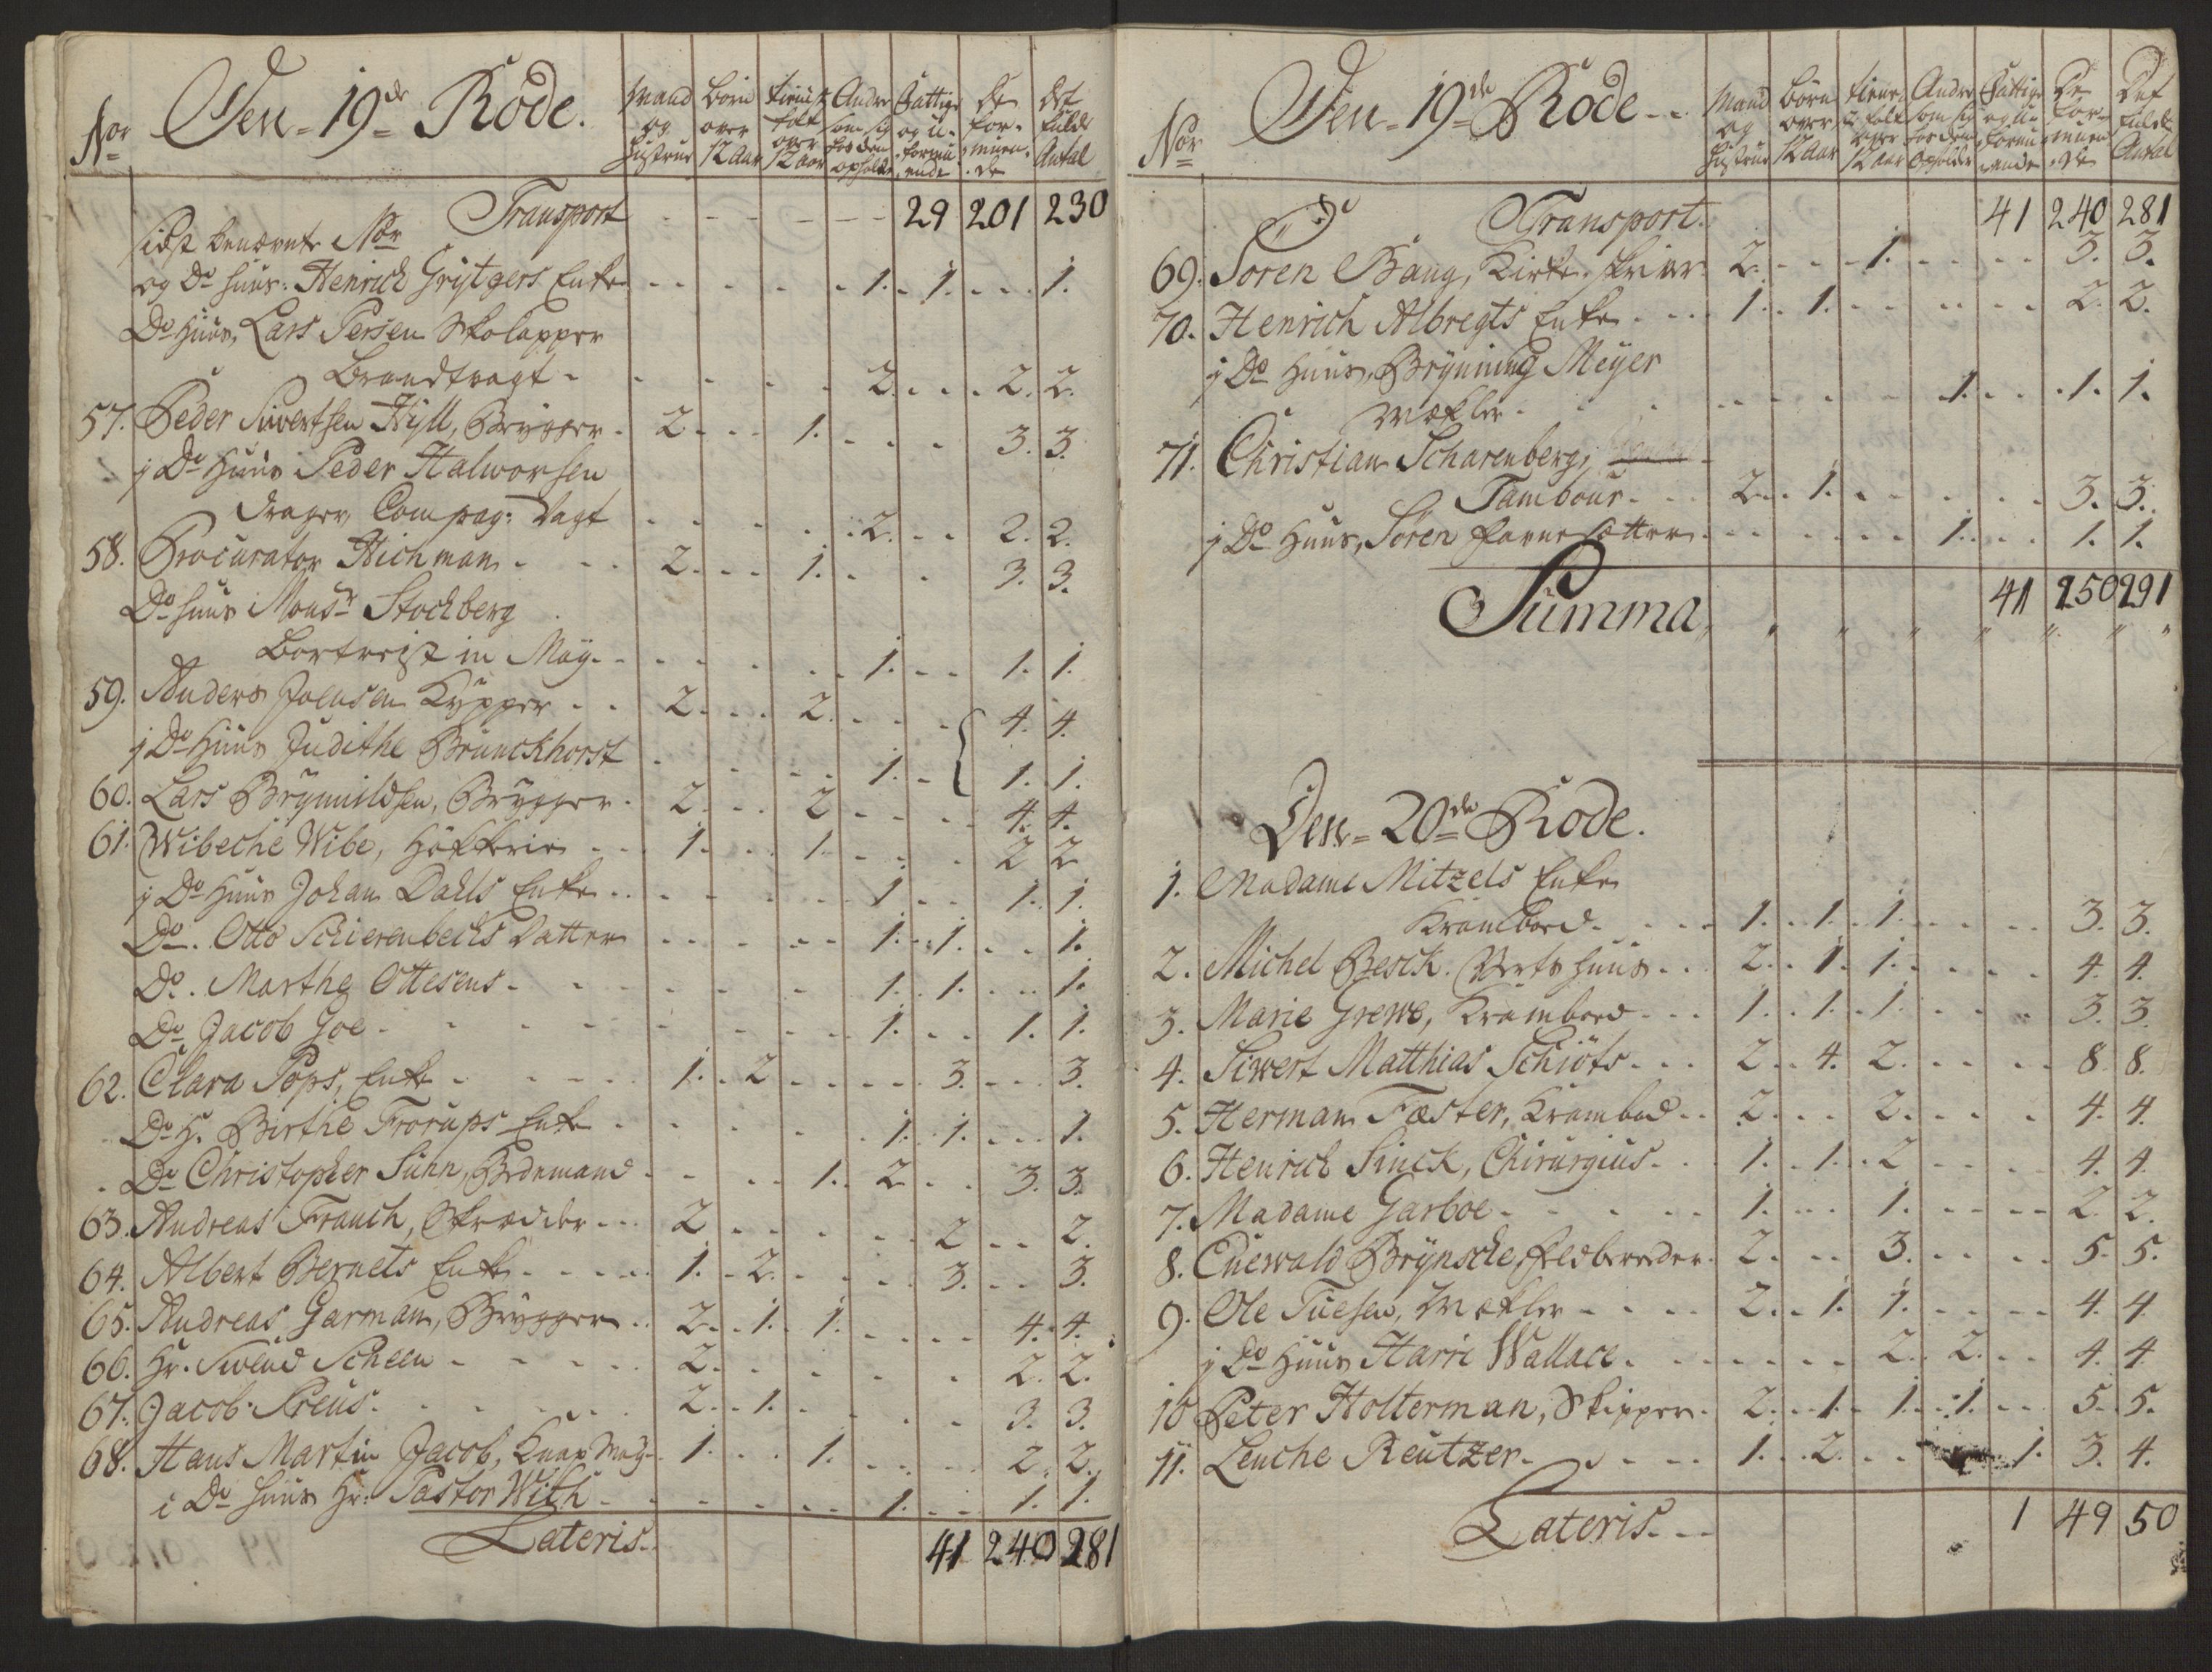 Nor Den 19de Rode. Mand og Hustrue Børn over 12 Aar tieniste folk over 12 aar Andre som sig hos dem opholde Fattige og u-formuende de formuende det fulde Antal
Transport - - - - - 29 201 230
sidst benævnte Nor
og Do huus: Henrich Grÿtgers Enke - - - - - 1. - 1. - - - 1.
Do Huus, Lars Persen Skolapper
Brandvagt - - - - - 2. - - - 2. 2.
57. Peder Siwertsen Hÿll, Brÿgger - 2. - - 1. - - - 3. 3.
j Do Huus Peder Halworsen
Drager, Compag: Vagt - - - - 2. - - 2. 2.
58. Procurator Hichman - - - 2. - - 1. - - 3. 3.
Do huus Monsr Stochberg
Bortreist in Maÿ - - - - - 1. - - 1. 1.
59. Anders Joensen Kÿpper - - 2. - - 2. - - - 4. 4.
j Do Huus Judithe Brunckhorst - - - - 1. - 1. 1.
60. Lars Brÿnnildsen, Brÿgger - 2. - - 2 - - - - 4. 4.
61. Wibeche Wibe, Høkkerie - - 1. - - 1. - - - 2 2
j Do Huus Johan Dahls Enke - - - - - - 1 - - 1. 1.
Do. Otto Schierenbechs Datter - - - - - 1. - 1. - - 1.
Do. Marthe Ottesens - - - - - - 1. - 1. - - - 1.
Do Jacob Goe - - - - - - - 1. - - 1. 1.
62. Clara Pops, Enke - - - - 1. - 2 - - - - - 3. - - - 3.
Do H. Birthe Frorups Enke - - - - - 1. 1. - - - 1.
Do Christopher Sunn, Bødemand - - - - 1. - 2 - - 3. 3.
63. Andreas Frauch, Skrædder - - - 2 - - - - - 2 - - 2.
64. Albert Bernets Enke - - - - 1. - 2. - - - - 3. - - - 3.
65. Andreas Garman, Brÿgger - - 2. - 1. - 1. - - - - 4. 4.
66. Hr. Swend Scheen - - - - - 2. - - - - - 2. 2.
67. Jacob Preus - - - - - - 2. - 1. - - - - 3. 3.
68. Hans Martin Jacob, Knap Mag - 1. - - 1. - - - - 2. 2.
i Do huus Hr: Pastor With - - - - - - 1. - - 1. 1.
Lateris - 41 240 281
Nor Den 19de Rode - - Mand og Hustrue Børn over 12 Aar tieneste folk over 12 aar Andre som sig hos dem Opholde Fattige og u-formuende De formuende Det fulde Antal
Transport. 41 240 281
69. Soren Bang, Kirke-skriver 2. - - - 1. - - - - 3. 3.
70. Henrich Albregts Enke - - - 1. - 1. - - - - - 2. 2.
j Do Huus, Brÿnning Meÿer
Mækler - - - - - - - - 1. - - 1. 1.
71. Christian Scharenberg,
Tambour - - - 2. - 1. - - - - - 3. 3.
j Do Huus, Søren - - - - - - - 1. - - - 1. 1.
Summa 41 250 291
Den 20de Rode.
1. Madame Mitzels Enke
Krambod - - - - 1. - 1. - 1. - - - - 3. 3.
2. Michel Besck. Wertshuus - - 2. - 1. 1. - - - - 4. 4.
3. Marie Grewe, Krambod - - - 1. - 1. - 1. - - - - 3. 3.
4. Siwert Matthias Schiöts - - - 2 - 4. 2. - - - - 8. 8.
5. Herman Fæster, Krambod - - 2. - - 2. - - - - 4. 4.
6. Henrich Sinck, Chirurgius - - - 1. - 1. - 2 - - - - 4. 4.
7. Madame Garboe - - - - - - 1. - - 1. - - - - 2. 2.
8. Euewald Brÿnsche, Feldbereder - 2. - - 3. - - - - 5. 5.
9. Ole Tuesen, Mækler - - - - 2. - 1. 1. - - - - 4. 4.
j Do Huus Harri Wallace - - - - - - - 2. 2. - - 4. 4
10 Peter Holterman, Skipper - 2. - 1. - 1. - 1. - - 5. 5.
11. Lenche Reutzer - - - - - 1. - 2. - - 1. 3. 4.
Lateris - - 1 49 50